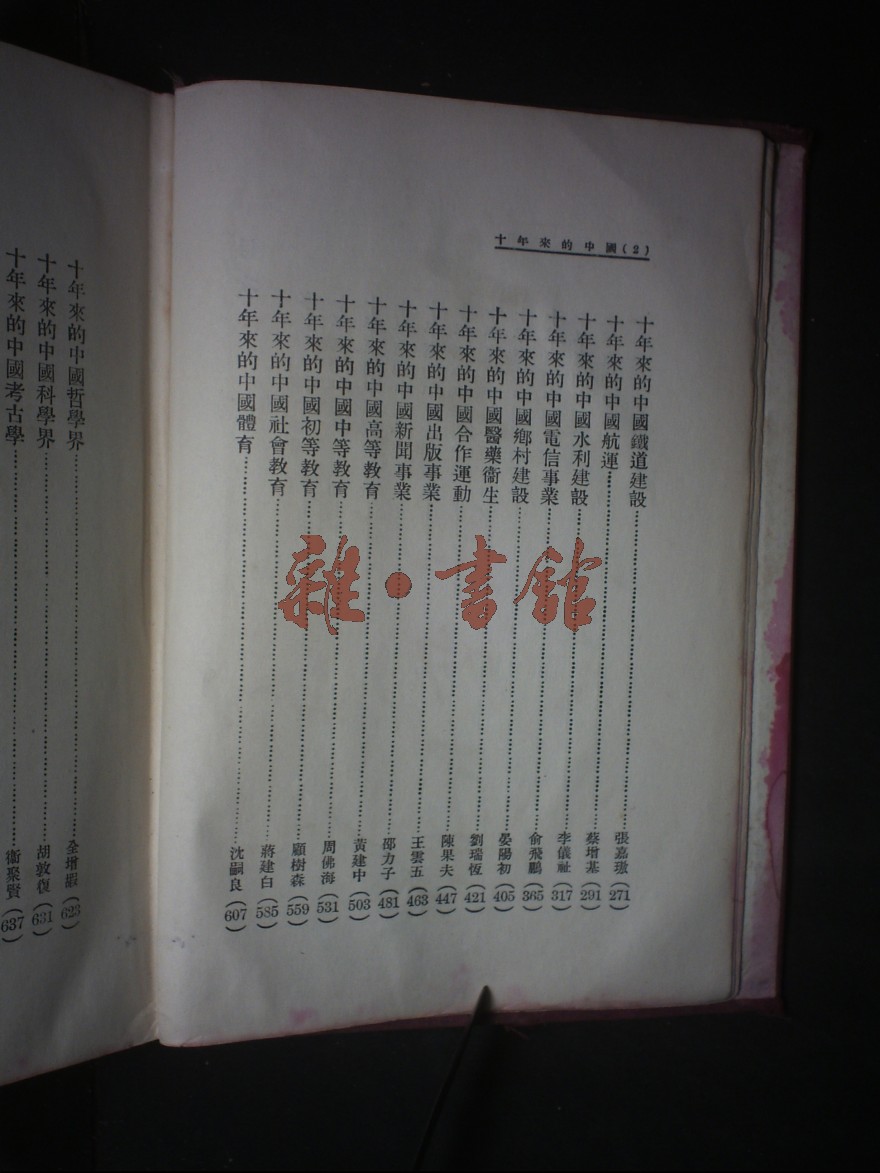 十年來的中國(2)
十年來的中國鐵道建設……張嘉璈(271)
十年來的中國航運……蔡增基(291)
十年來的中國水利建設……李儀祉(317)
十年來的中國電信事業……俞飛鵬(365)
十年來的中國鄉村建設……晏陽初(405)
十年來的中國醫藥衞生……劉瑞恆(421)
十年來的中國合作運動……陳果夫(447)
十年來的中國出版事業……王雲五(463)
十年來的中國新聞事業……邵力子(481)
十年來的中國高等教育……黃建中(503)
十年來的中國中等教育……周佛海(531)
十年來的中國初等教育……顧樹森(559)
十年來的中國社會教育……蔣建白(585)
十年來的中國體育……沈嗣良(607)
十年來的中國哲學界……全增嘏(623)
十年來的中國科學界……胡敦復(631)
十年來的中國考古學……衞聚賢(637)
雜·書館